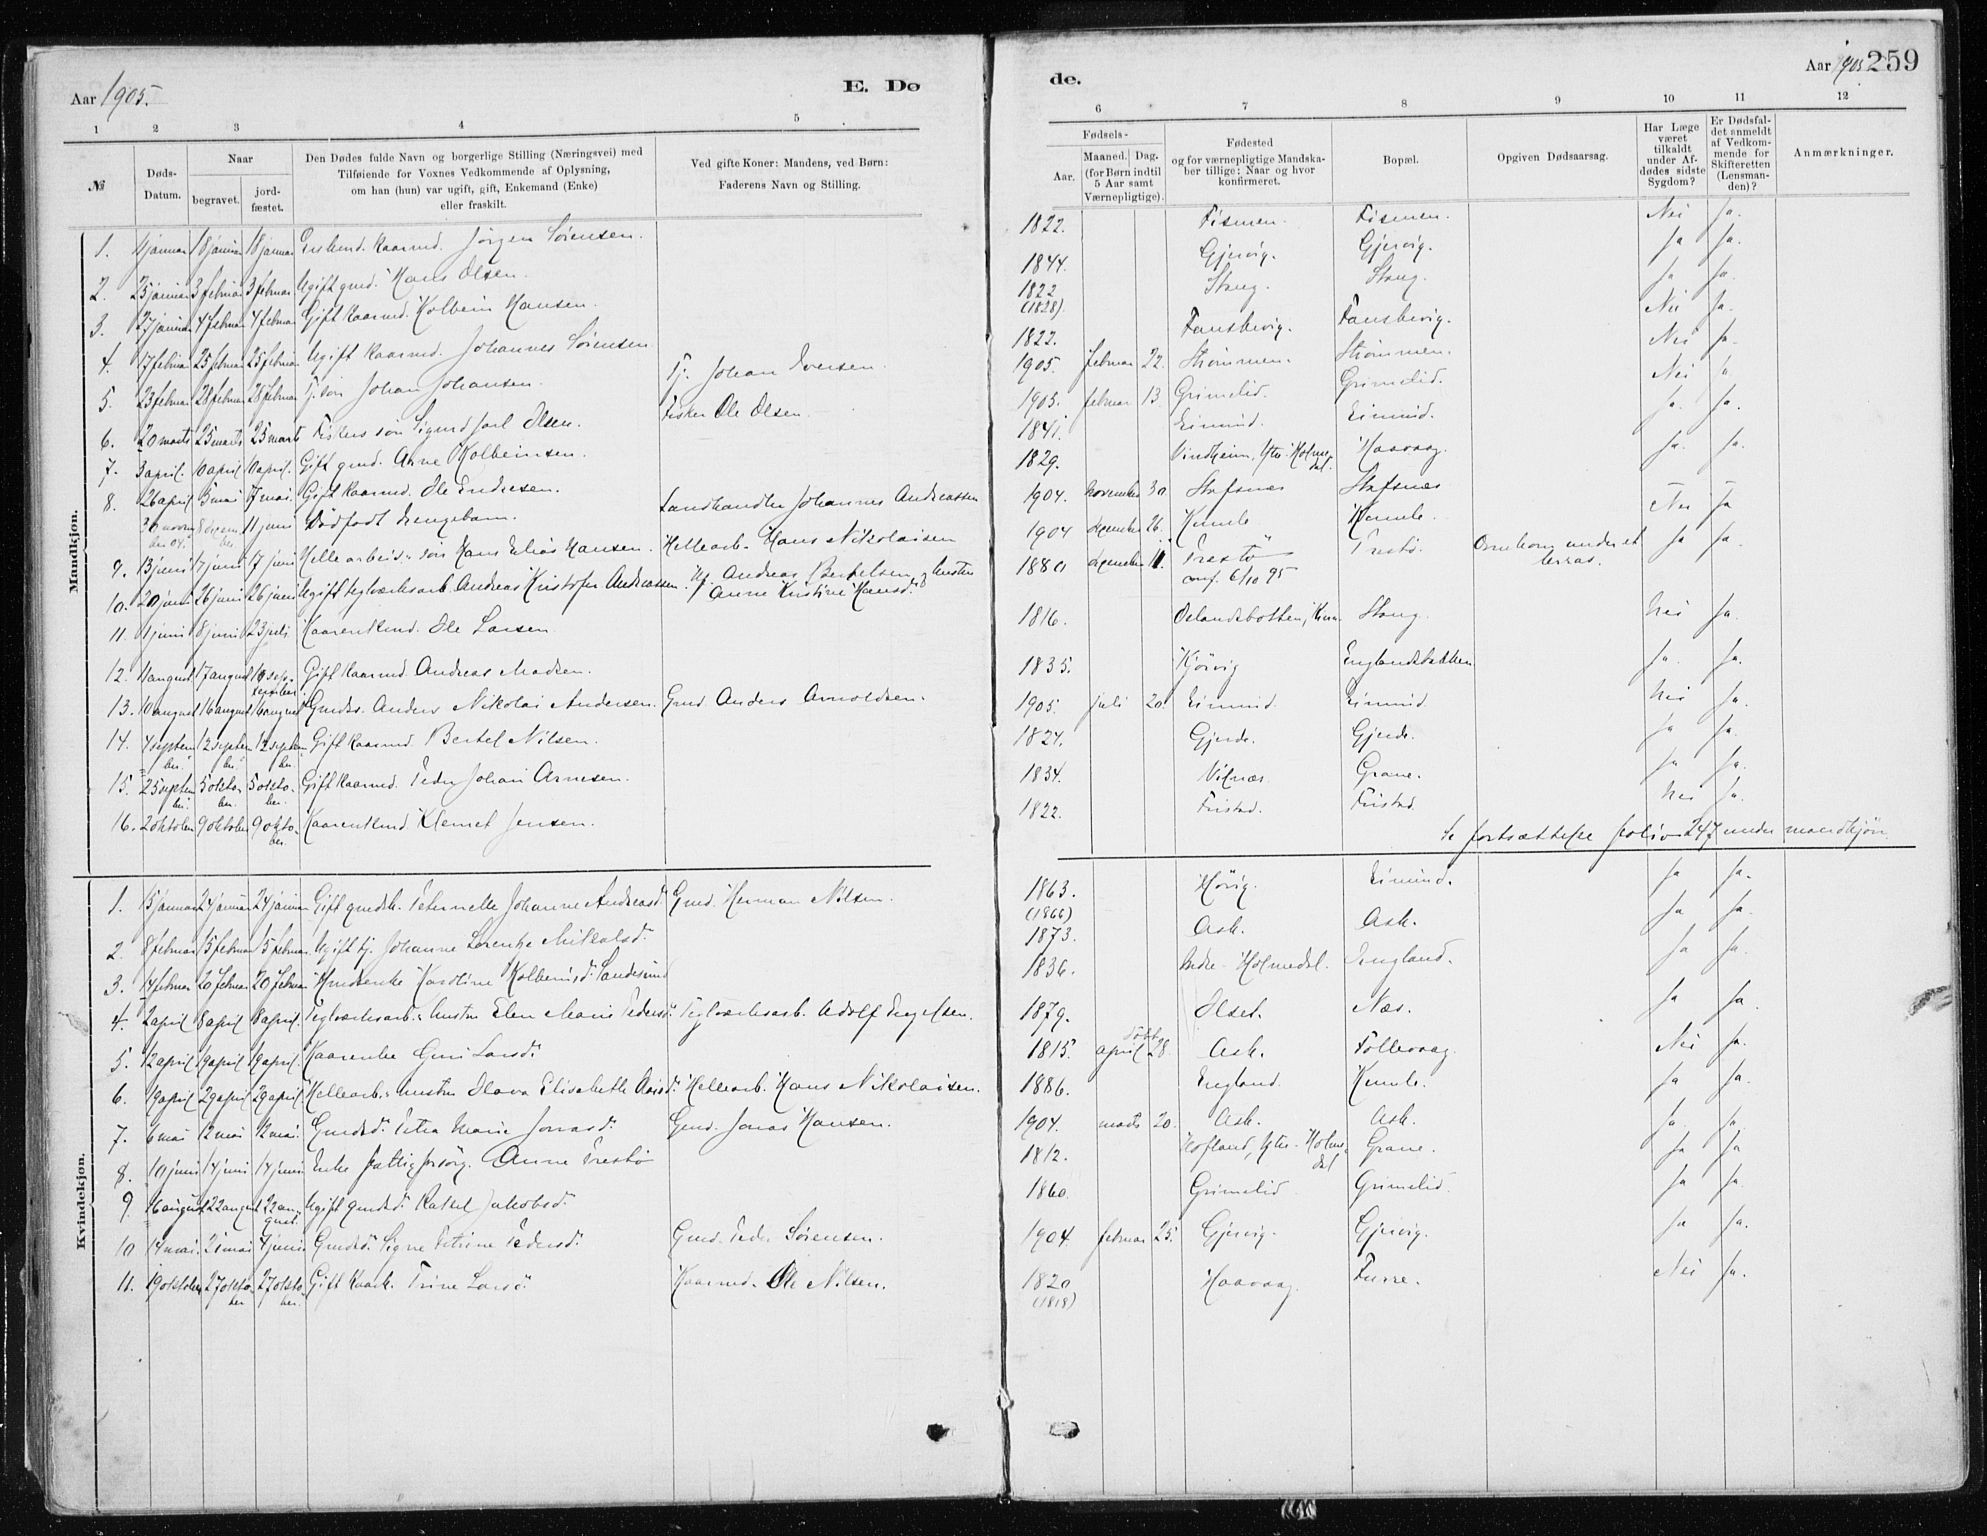 Aar 1905.
E. Dø
1 2 3 4 5
№
Døds-Datum.
Naar
begravet.
jord-fæstet.
Den Dødes fulde Navn og borgerlige Stilling (Næringsvei) med
Tilføiende for Voxnes Vedkommende af Oplysning,
om han (hun) var ugift, gift, Enkemand (Enke)
eller fraskilt.
Ved gifte Koner: Mandens, ved Børn:
Faderens Navn og Stilling.
Mandkjøn.
1. 18 januar 18 januar Jørgen Sørensen.
2. 25 januar 3 februar 3 februar Ugift gmd. Hans Olsen.
3. 27 januar 4 februar 4 februar Gift kaarmd. Kolbein Hansen.
4. 17 februar 25 februar 25 februar Ugift kaarmd. Johannes Sørensen
5. 23 februar 28 februar 28 februar Tj. søn Johan Johansen. Tj. Johan Iversen.
6. 20 marts 25 marts 25 marts Fiskers søn Sigurd Joel Olsen. Fisker Ole Olsen.
7. 3 april. 10 april 10 april. Gift gmd. Arne Kolbeinsen.
8. 26 april 5 mai 7 mai. Gift kaarmd. Ole Endresen.
11 juni Dødfødt drengebarn. Landhandler Johannes Andreassen
9. 13 juni 17 juni 17 juni Hellearbeid. søn Hans Elias Hansen. Hellearb. Hans Nikolaisen
10. 20 juni 26 juni 26 juni Ugift teglverksarb. Andreas Kristofer Andreassen. Andreas Bertelsen og hustru
Anne Kristine Hansd.
11. 1 juni 8 juni 23 juli Kaarenkmd. Ole Larsen
12. 11 august 17 august 10 september Gift kaarmd. Andreas Madsen.
13. 10 august 16 august 16 august Gmds. Anders Nikolai Andersen. Gmd. Anders Arnoldsen.
14. 4 september 12 september 12 september Gift kaarmd. Bertel Nilsen.
15. 25 september 5 oktober. 5 oktober. Gift kaarmd. Peder Johan Arnesen.
16. 2 oktober 9 oktober 9 oktober Kaarenkmd. Klemet Jensen.
Kvindekjøn.
1. 15 januar 24 januar 24 januar Gift gmdsk. Peternelle Johanne Andreasd. Gmd. Herman Nilsen.
2. 8 februar 15 februar 15 februar Ugift tj. Johanne Lorentze Mikalsd.
3. 14 februar 20 februar 20 februar Karoline Kolbeinsd. Sandesund
4. 2 april 8 april 8 april. Teglverksarb. hustru Elen Marie Pedersd. Teglverksarb. Adolf Engelsen.
5. 12 april 19 april 19 april. Kaarenke Guri Larsd.
6. 19 april 29 april 29 april Hellearb. hustru Olava Elisabeth Hellearb. Hans Nikolaisen.
7. 6 mai 12 mai 12 mai. Gmdsd. Petra Marie Jonasd. Gmd. Jonas Hansen.
8. 10 juni 14 juni 14 juni Enke fattigforsørg. Anne Trestø
9. 16 august 22 august 22 august. Ugift gmdsd. Rakel Jakobsd.
10 14 mai. 21 mai 4 juni Gmdsd. Signe Petrine Pedersd. Gmd. Peder Sørensen.
11. 19 oktober 27 oktober 27 oktober. Gift kaark. Trine Larsd. Kaarmd. Ole Nilsen.
de.
Aar 1905 259
6 7 8 9 10 11 12
Fødsels-
Aar.
Maaned. Dag.
(for Børn indtil
5 Aar samt
Værnepligtige).
Fødested
og for værnepligtige Mandska-
ber tillige: Naar og hvor
konfirmeret.
Bopæl.
Opgiven Dødsaarsag.
Har Læge
været
tilkaldt
under Af-
dødes sidste
Sygdom?
Er Dødsfal-
det anmeldt
af Vedkom-
mende for
Skifteretten
(Lensman-
den)?
Anmærkninger.
1822. Nei Ja.
1844. Gjervig. Gjervig. Ja Ja.
1822 (1828). Skaug. Skaug. Ja Ja.
1822. Nei Ja.
1905. februar 22. Strømmen. Strømmen. Nei Ja.
1905. februar 13 Grimelid. Grimelid. Nei Ja
1841. Eimind. Eimind. Ja. Ja.
1829. Vindheim, Ytre Holmedal. Haavaag. Ja. Ja.
1904. november 30. Stafsnes Stafsnes
1904 december 26. Kumle Kumle. Nei Ja
1880 december 11. Trestø Trestø. Ja Ja.
conf. 6/10 95
1816. Skaug. Nei Ja.
1835. Kjørvig Englandsbakken Ja. Ja.
1905. juli 20. Eimind. Eimind. Nei Ja.
1824. Gjerde. Gjerde. Ja Ja.
1834. Vilnæs. Grane. Ja Ja.
1822. Fristad. Fristad Nei Ja.
Se fortsættelse folio 247 under mandkjøn
1863. (1866) Hørvig. Eimind. Ja Ja.
1873. Ask. Ask. Ja Ja.
1836. Indre-Holmedal. England. Ja Ja.
1879. Olset. Næs. Ja Ja
1815. april 28. døbt Ask. Follevaag. Nei Ja.
1886. England. Kumle. Ja Ja.
1904. marts 20. Ask. Ask. Ja. Ja.
1812. Hofland, Ytre-Holmedal Grane. Ja Ja
1860. Grimelid. Grimelid. Ja Ja
1904. februar 25. Gjervig. Gjervig. Ja Ja.
1820 (1818) Haavaag. Furre. Nei Ja.